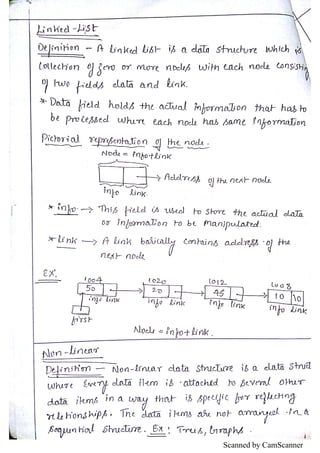 Linked-List
Definition - A linked list is a data structure which is
collection of zero or more nodes with each node consisting
of two fields data and link.
* Data field holds the actual information that has to
be processed where each node has same Information
Pictorial representation of the node.
Node = Info+link
→ Address of the next node
info link
* info → This field is used to store the actual data
or information to be manipulated.
* link → A link basically contains address of the
next node
EX:
1004 1020 1012 1008
50 20 45 10 \0
info link info link info link info link
first
Node = info+link.
Non-linear
Definition - Non-linear data structure is a data struct
where Every data item is attached to several other
data items in a way that is specific for reflecting
relationships. The data items are not arranged in a
sequential structure. Ex: Trees, Graphs.
Scanned by CamScanner